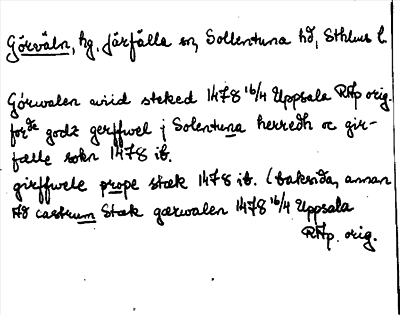 Görväln, hg. Järfälla sn, Sollentuna hd, Sthlms l.
Görwalen wiid steked 1478 16/4 Uppsala RAp orig.
forde godz gerffwel j Solentuna herredh oc gir-
fælle sokn 1478 ib.
girffwele prope stæk 1478 ib. (baksida, annan
hd castrum Stæk gærwalen 1478 16/4 Uppsala
RAp. orig.